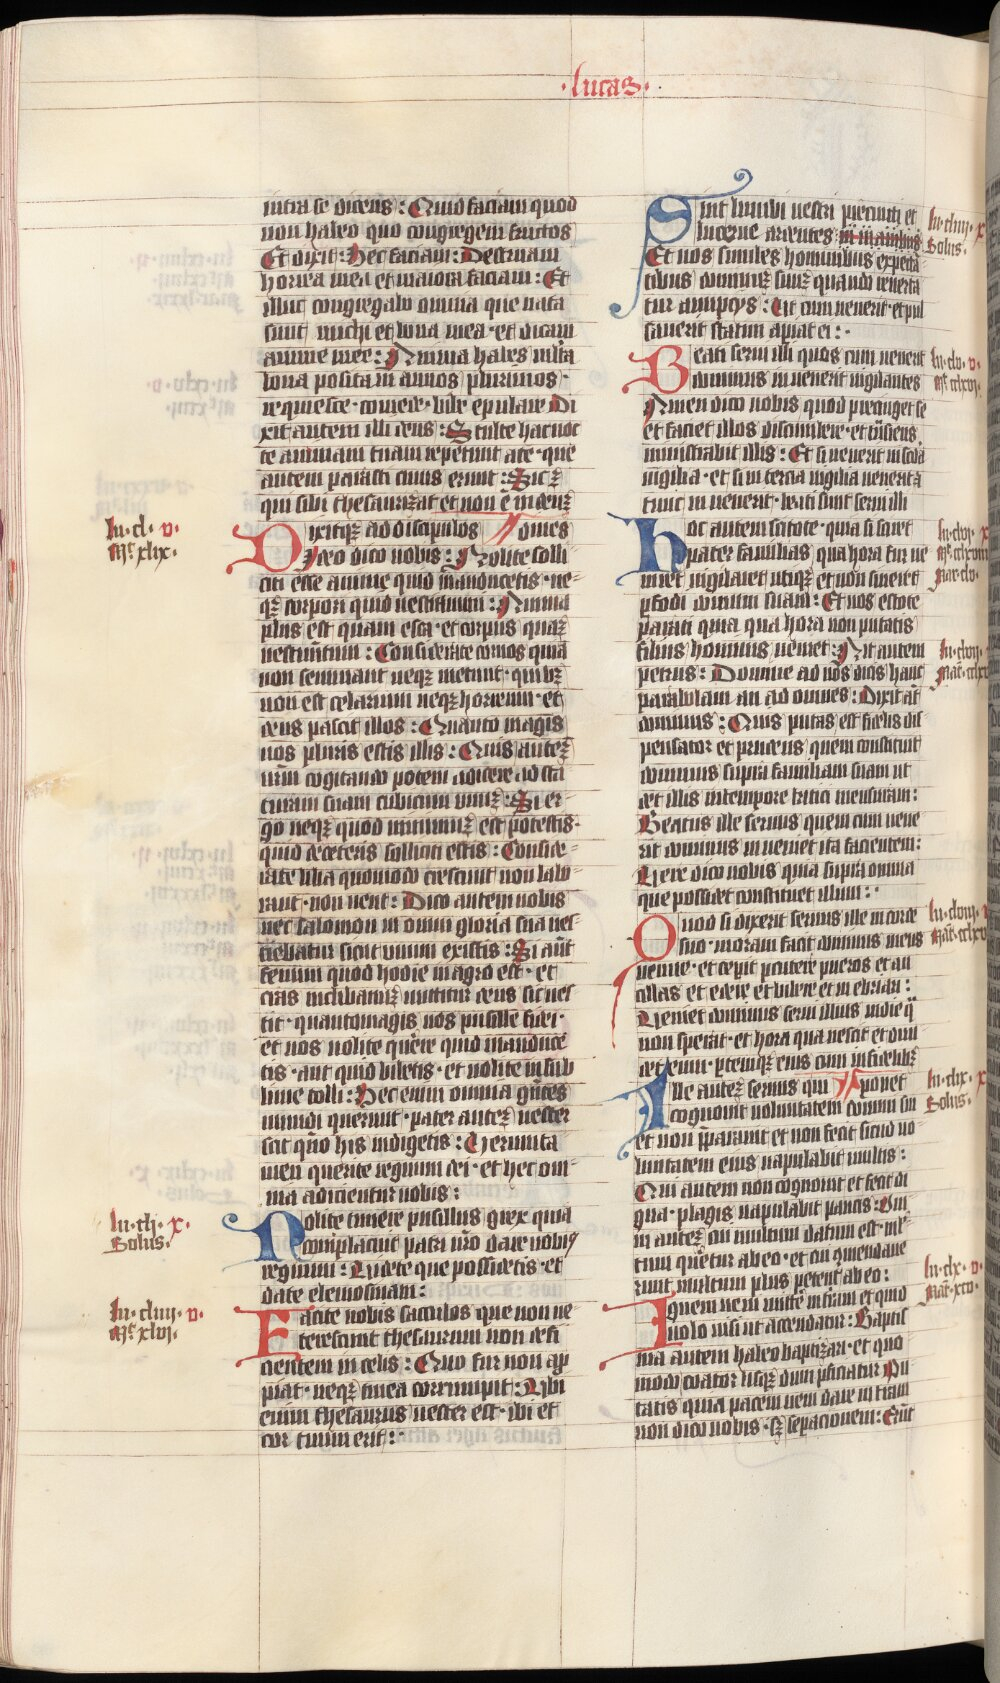 ·lucas·
intra se dicens: Quid faciam quod
non habeo quo congregem fructos
Et dixit: Hec faciam: Destruam
horrea mea et maiora faciam: Et
illuc congregabo omnia que nata
sunt michi et bona mea· et dicam
anime mee: Anima habes mĺta
bona posita in annos plurimos·
requiesce· comede· bibe epulare Di
xit autem illi deus: Stulte hac noc
te animam tuam repetunt a te· que
autem parasti cuius erunt: Sic ē
qui sibi thesaurizat et non ē in deuꝫ
Dixitqꝫ ad discipulos
Ideo dico uobis: Nolite solli
citi esse anime quid māducetis· ne-
qꝫ corpori quid uestimini: Anima
plus est quam esca· et corpus quaꝫ
uestimētum: Considerate coruos quia
non seminant neqꝫ metunt· quibꝫ
non est celarium neqꝫ horreum· et
deus pascit illos: Quanto magis
uos pluris estis illis: Quis auteꝫ
urm̄ cogitando potest adicere ad sta
turam suam cubitum unuꝫ: Si er-
go neqꝫ quod minimuꝫ est potestis·
quid de ceteris solliciti estis: Conside-
rate lilia quomodo crescunt non labo-
rant· non nent: Dico autem uobis
nec salomon in omni gloria sua ues-
tiebatur sicut unum ex istis: Si aūt
fenum quod hodie in agro est· et
cras in clibanuꝫ mittitur deus sic ues
tit· quantomagis uos pusille fidei·
et uos nolite quēre quid manduce
tis· aut quid bibetis· et nolite in sub
lime tolli: Hec enim omnia gn̄tes
mundi querunt· pater auteꝫ uester
scit qm̄o his indigetis: Uerumta
men querite regnum dei· et hec om-
nia adicientur uobis:
Nolite timere pusillus grex quia
complacuit patri uro dare uobis
regnum: Uendite que possidetis· et
date elemosinam:
Facite uobis sacculos que non ue-
terescunt thesaurum non defi
cientem in celis: Quo fur non ap
piat· neqꝫ tinea corrumpit: Ubi
enim thesaurus uester est· ibi et
cor tuum erit:·
In·cl· v·
Mͬ xlix·
In·cli· x·
Solus·
In·cliii· v·
Mͬ xlvi·
Sint lumbi uestri precincti et
lucerne ardentes in manibus
Et uos similes hominibus expectā
tibus dominuꝫ suuꝫ quando reuerta
tur a nuptiis: Ut cum uenerit· et pul
sauerit statim apiāt ei:·
Beati serui illi quos cum uenerit
dominus inuenerit uigilantes
Amen dico uobis quod precinget se
et faciet illos discumbere· et trāsiens
ministrabit illis: Et si uenerit in scd̄a
uigilia· et si in tercia uigilia uenerit ⁊
ita inuenerit· beati sunt serui illi
Hoc autem scitote· quia si sciret
pater familias qua hora fur ue
niret uigilaret utiqꝫ et non sineret
pfodi domum suam: Et uos estote
parati quia qua hora non putatis
filius hominis ueniet: Ait autem
petrus: Domine ad nos dicis hanc
parabolam an ad omnes: Dixit aūt
dominus: Quis putas est fidelis dis
pensator et prudens quem constituit
dominus supra familiam suam ut
det illis in tempore tritici mensuram:
Beatus ille seruus quem cum uene
rit dominus inueniet ita facientem:
Uere dico uobis quia supra omnia
que possidet constituet illum:·
Quod si dixerit seruus ille in corde
suo· moram facit dominus meus
uenire· et ceperit pcutere pueros et an
cillas et edere et bibere et inebriari:
Ueniet dominus serui illius in die q̄
non sperat· et hora qua nescit et diui
det eum· ptemqꝫ eius cum infidelibꝫ
Ille auteꝫ seruus qui ponet
cognouit uoluntatem domini sui
et non p̄parauit et non fecit scd̄ uo
luntatem eius uapulabit multis:
Qui autem non cognouit et fecit di
gna· plagis uapulabit paucis: Om
ni auteꝫ cui multum datum est· ml̄
tum quēretur ab eo· et cui ꝯmendaue
runt multum plus petent ab eo:
Ignem ueni mittē in terram et quid
uolo nisi ut accendatur: Baptis
ma autem habeo baptizari· et quo
modo coartor usqꝫ dum pficiatur Pu
tatis quia pacem ueni dare in terram
non dico uobis· sꝫ separacionem: Erūt
Solus·
In·clv· v·
In·clvi· x
In·clvii·
In·clviii·
In·clix· x
Solus·
In·clx· v·